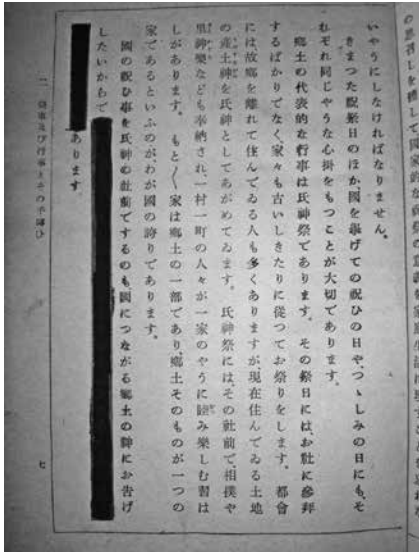 いやうにしなければなりません。
きまつた祝祭日のほか、國を擧げての祝ひの日や、つゝしみの日にも、そ
れぞれ同じやうな心掛をもつことが大切であります。
郷土の代表的な行事は氏神祭であります。その祭日には、お社に參拜
するばかりでなく、家々も古いしきたりに從つてお祭りをします。都會
には故郷を離れて住んでゐる人も多くありますが、現在住んでゐる土地
の産土神を氏神としてあがめてゐます。氏神祭には、その社前で、相撲や
里神樂なども奉納され、一村一町の人々が一家のやうに睦み樂しむ習は
しがあります。もと／＼家は郷土の一部であり、郷土そのものが一つの
家であるといふのが、わが國の誇りであります。
國の祝ひ事を氏神の社前でするのも、國につながる郷土の神にお告げ
したいからで
あります。
七